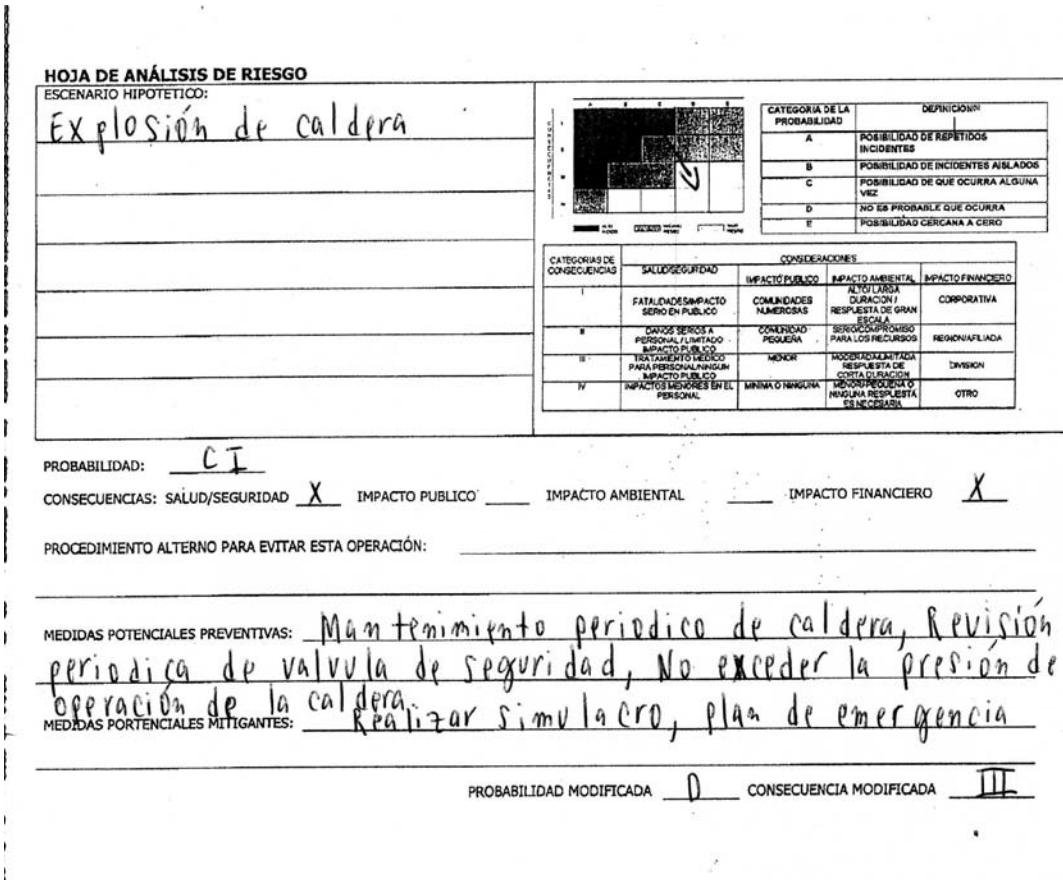 HOJA DE ANÁLISIS DE RIESGO
ESCENARIO HIPOTETICO:
Explosión de caldera
A
CATEGORIA DE LA PROBABILIDAD DEFINICION
A POSIBILIDAD DE REPETIDOS INCIDENTES
B POSIBILIDAD DE INCIDENTES AISLADOS
C POSIBILIDAD DE QUE OCURRA ALGUNA VEZ
D NO ES PROBABLE QUE OCURRA
E POSIBILIDAD CERCANA A CERO
CATEGORIAS DE CONSECUENCIAS CONSIDERACIONES
SALUD/SEGURIDAD IMPACTO PUBLICO IMPACTO AMBIENTAL IMPACTO FINANCIERO
I FATALIDADES/IMPACTO SERIO EN PUBLICO COMUNIDADES NUMEROSAS ALTO/LARGA DURACION / RESPUESTA DE GRAN ESCALA CORPORATIVA
II DANOS SERIOS A PERSONAL / LIMITADO IMPACTO PUBLICO COMUNIDAD PEQUEÑA SERIO/COMPROMISO PARA LOS RECURSOS REGION/AFILIADA
III TRATAMIENTO MEDICO PARA PERSONAL/NINGUN IMPACTO PUBLICO MENOR MODERADA/LIMITADA RESPUESTA DE CORTA DURACION DIVISION
IV IMPACTOS MENORES EN EL PERSONAL MINIMA O NINGUNA MENOR/PEQUEÑA O NINGUNA RESPUESTA ES NECESARIA OTRO
PROBABILIDAD: C I
CONSECUENCIAS: SALUD/SEGURIDAD X IMPACTO PUBLICO IMPACTO AMBIENTAL IMPACTO FINANCIERO X
PROCEDIMIENTO ALTERNO PARA EVITAR ESTA OPERACIÓN:
MEDIDAS POTENCIALES PREVENTIVAS: Mantenimiento periodico de caldera, Revisión
periodica de valvula de seguridad, No exceder la presión de
operación de la caldera.
MEDIDAS PORTENCIALES MITIGANTES: Realizar simulacro, plan de emergencia
PROBABILIDAD MODIFICADA D CONSECUENCIA MODIFICADA III